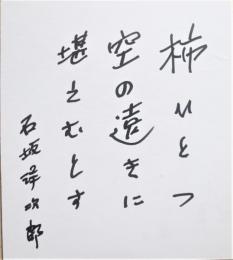 柿ひとつ
空の遠きに
堪えむとす
石坂洋次郎